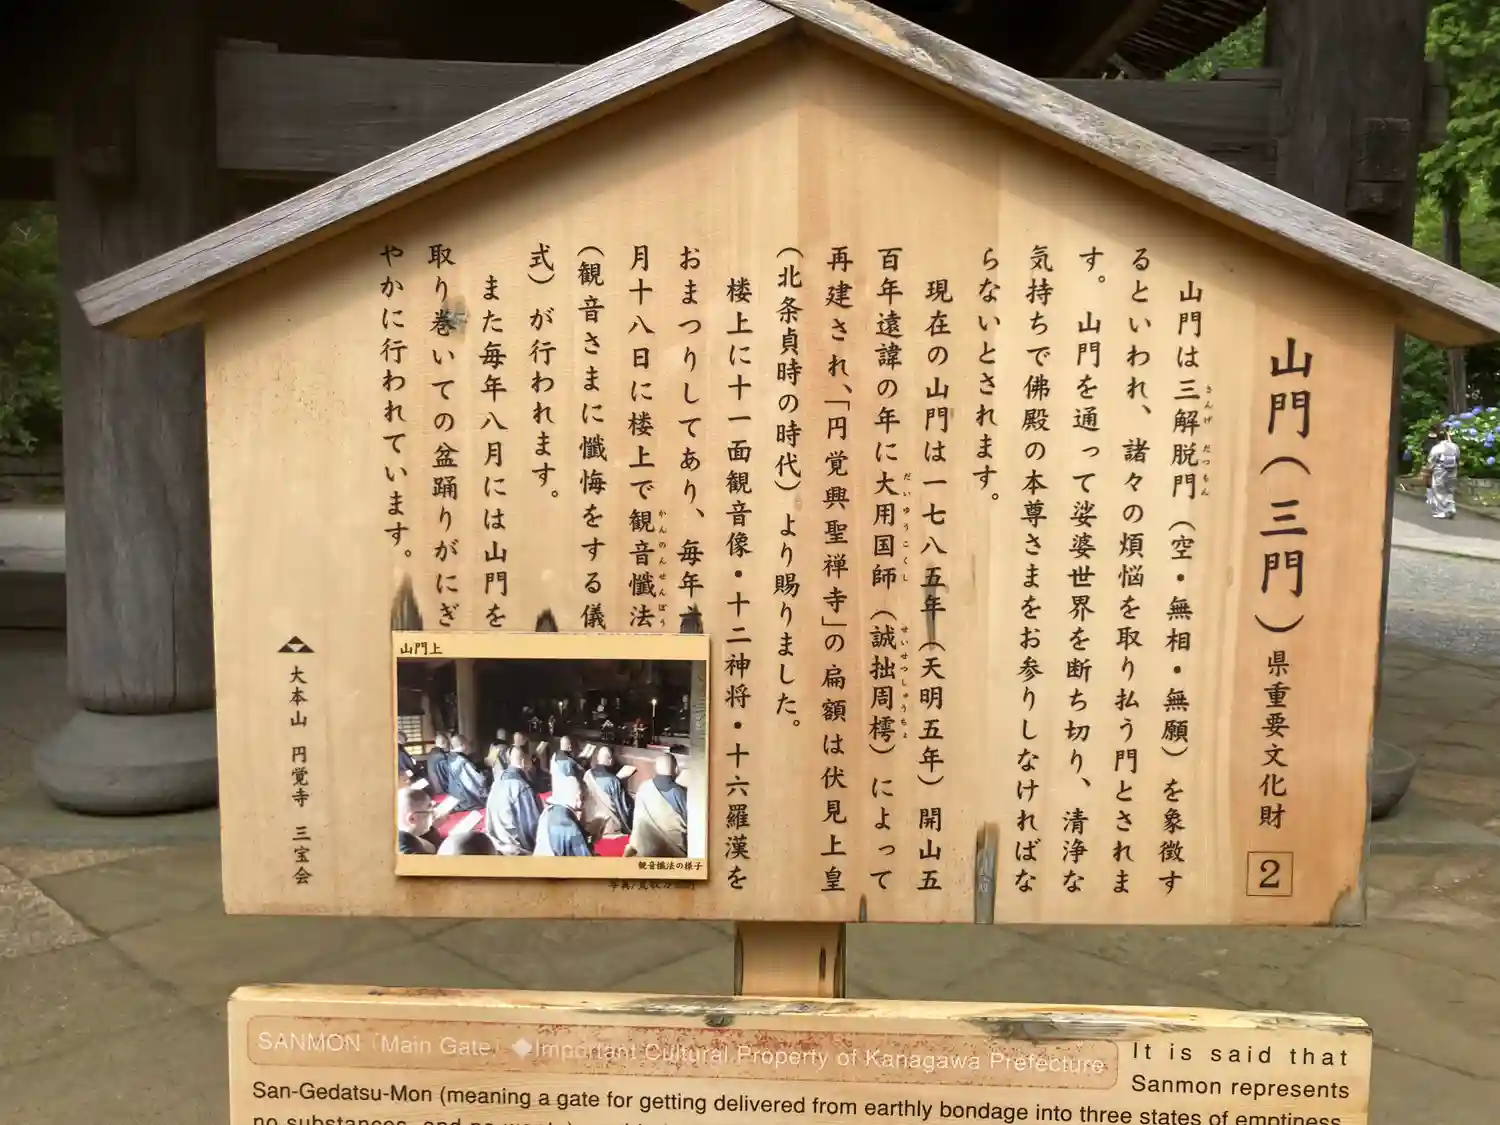 山門（三門）県重要文化財 2
山門は三解脱門（空・無相・無願）を象徴す
さんげ だつもん
るといわれ、諸々の煩悩を取り払う門とされま
す。山門を通って娑婆世界を断ち切り、清浄な
気持ちで佛殿の本尊さまをお参りしなければな
らないとされます。
現在の山門は一七八五年（天明五年）開山五
百年遠諱の年に大用国師（誠拙周樗）によって
だいゆうこくし せいせつしゅうちょ
再建され、「円覚興聖禅寺」の扁額は伏見上皇
（北条貞時の時代）より賜りました。
楼上に十一面観音像・十二神将・十六羅漢を
おまつりしてあり、毎年六
月十八日に楼上で観音懺法
かんのんせんぼう
（観音さまに懺悔をする儀
式）が行われます。
また毎年八月には山門を
取り巻いての盆踊りがにぎ
やかに行われています。
大本山 円覚寺 三宝会
山門上
観音懺法の様子
SANMON（Main Gate）◆Important Cultural Property of Kanagawa Prefecture
It is said that
Sanmon represents
San-Gedatsu-Mon (meaning a gate for getting delivered from earthly bondage into three states of emptiness,
no substances, and no wants)